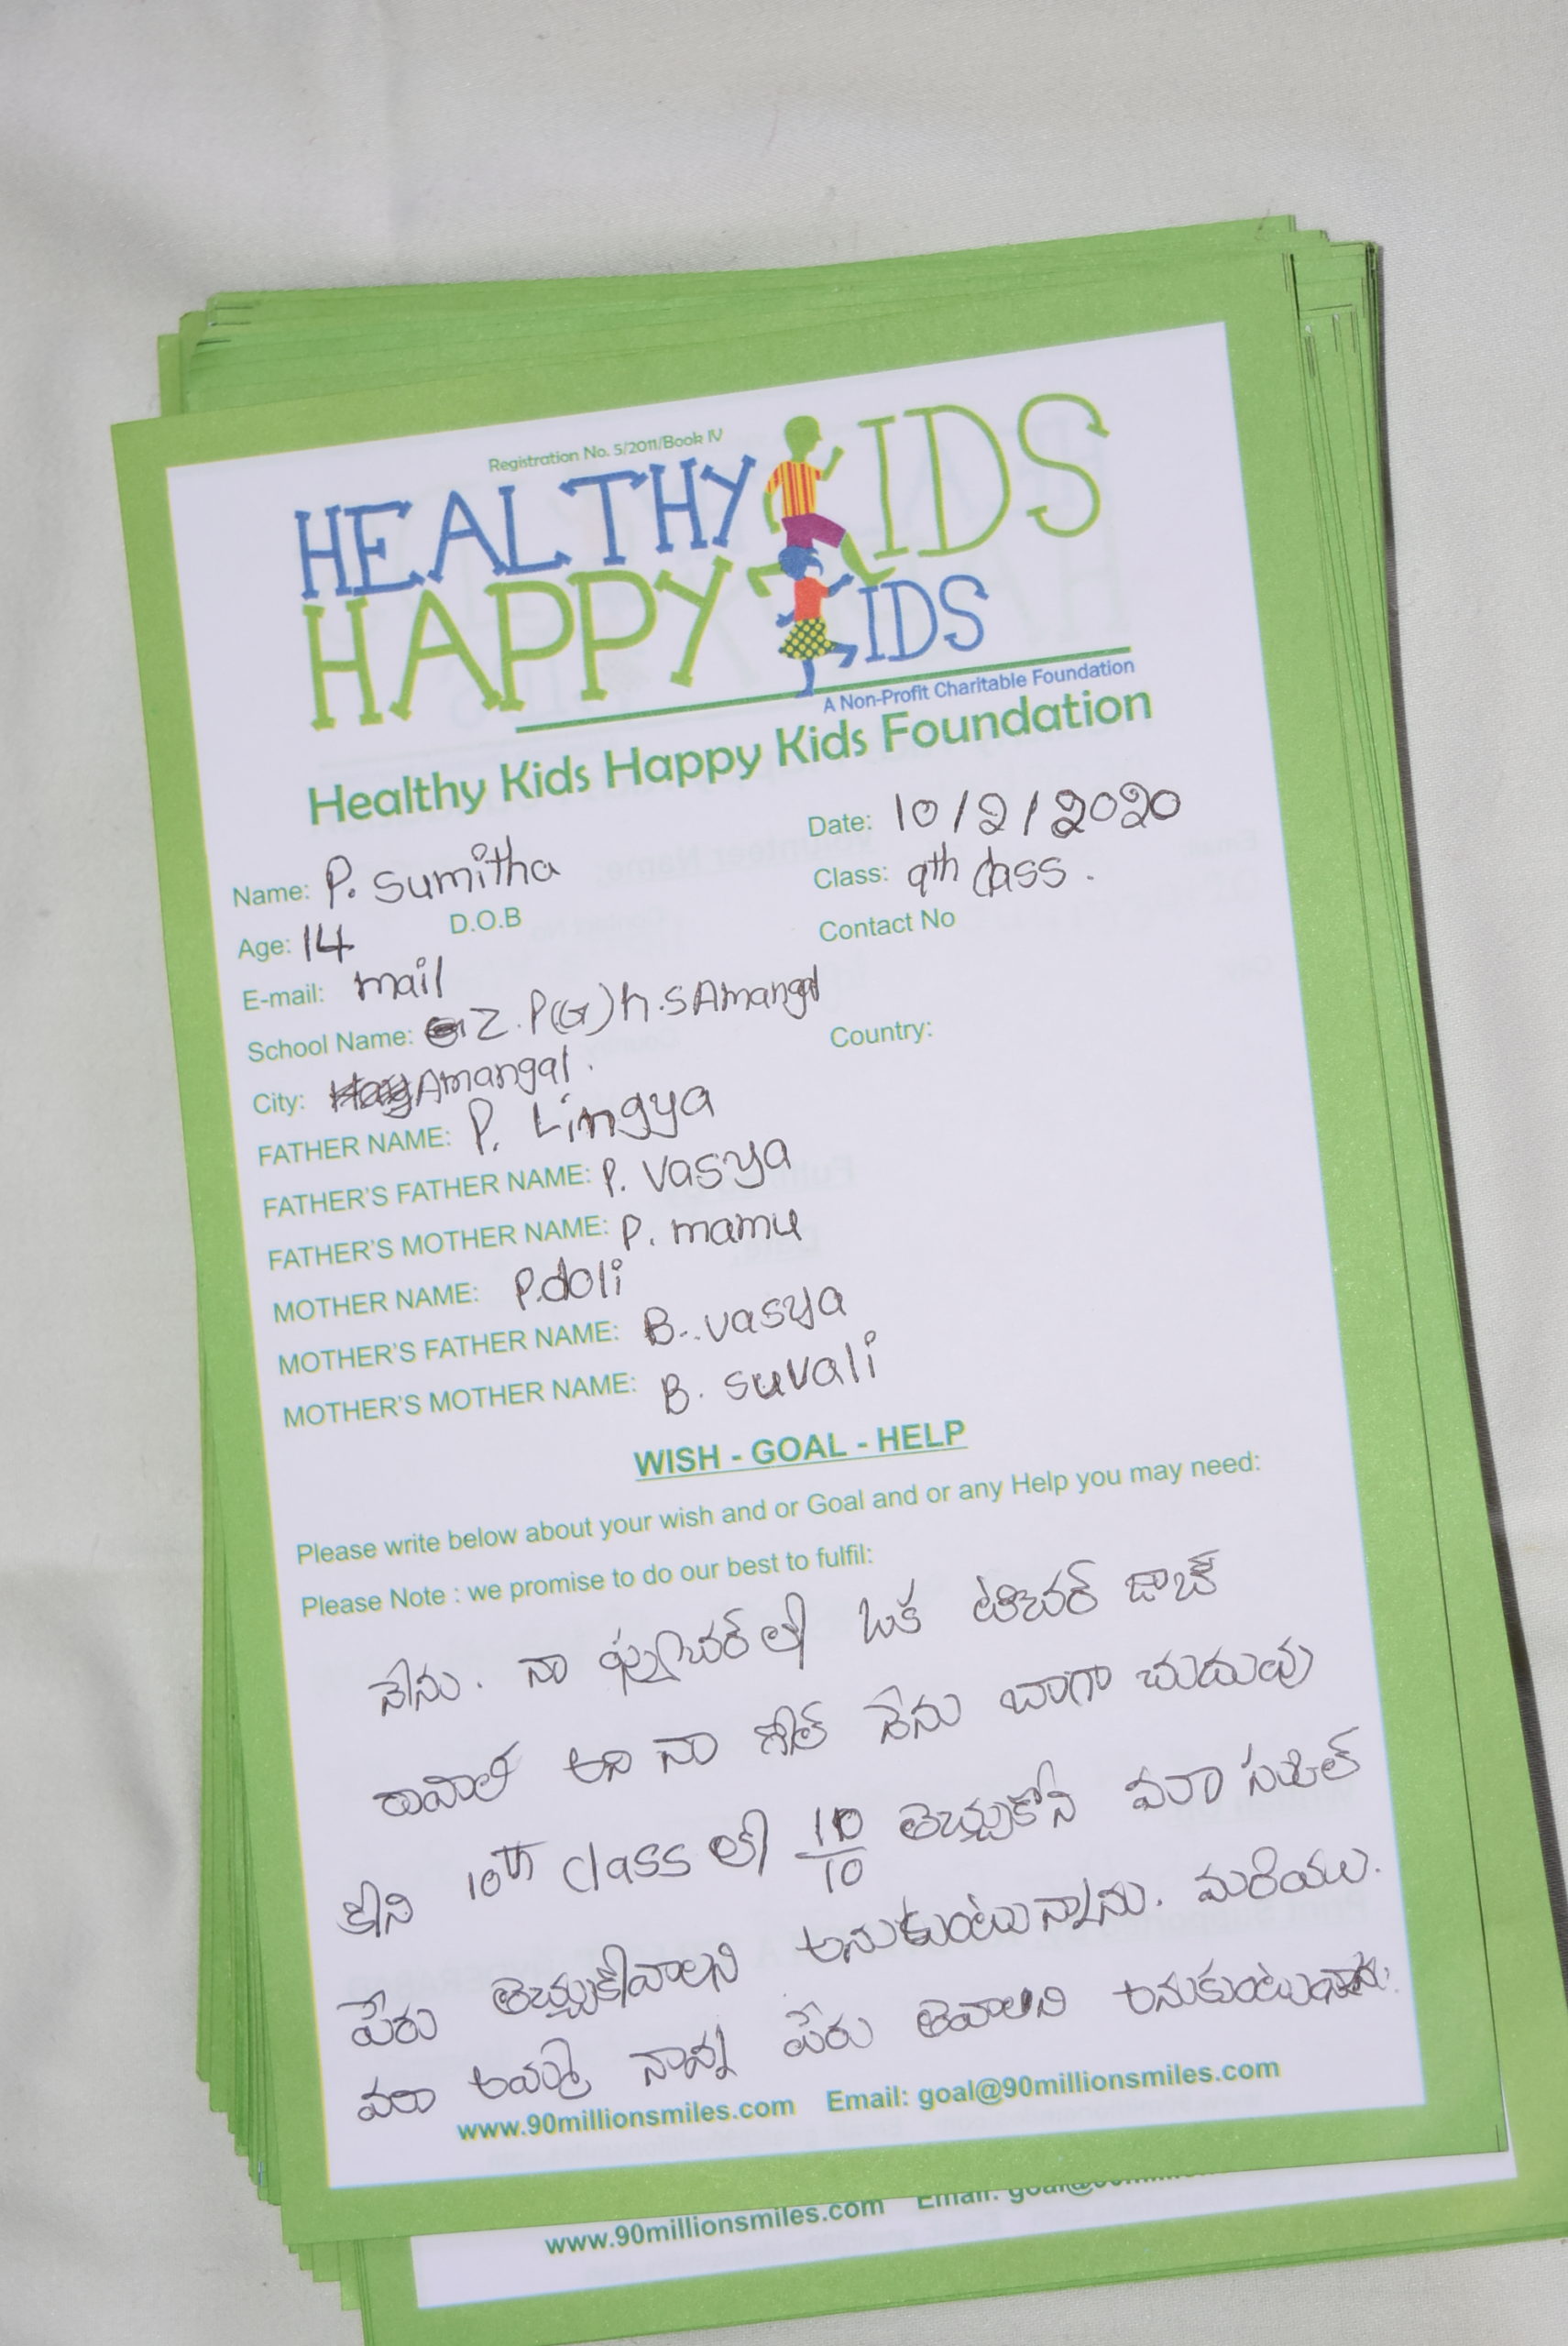 Registration No. 5/2011/Book IV
HEALTHY KIDS
HAPPY KIDS
A Non-Profit Charitable Foundation
Healthy Kids Happy Kids Foundation
Name: P. Sumitha Date: 10/2/2020
Age: 14 D.O.B Class: 9th class.
E-mail: mail Contact No
School Name: Z.P(G)h.s Amangal
City: Amangal. Country:
FATHER NAME: P. Lingya
FATHER'S FATHER NAME: P. Vasya
FATHER'S MOTHER NAME: P. mamu
MOTHER NAME: P.doli
MOTHER'S FATHER NAME: B. vasya
MOTHER'S MOTHER NAME: B. suvali
WISH - GOAL - HELP
Please write below about your wish and or Goal and or any Help you may need:
Please Note : we promise to do our best to fulfil:
నేను. నా ఫ్యూచర్ లో ఒక టీచర్ జాబ్
రావాలి అని నా గోల్ నేను బాగా చుదువు
కోని 10th class లో 10/10 తెచ్చుకోని మా
పేరు తెచ్చుకోవాలని అనుకుంటున్నాను. మరియు.
మా అమ్మ నాన్న పేరు తెవాలని అనుకుంటున్నాను.
www.90millionsmiles.com Email: goal@90millionsmiles.com
www.90millionsmiles.com Email: